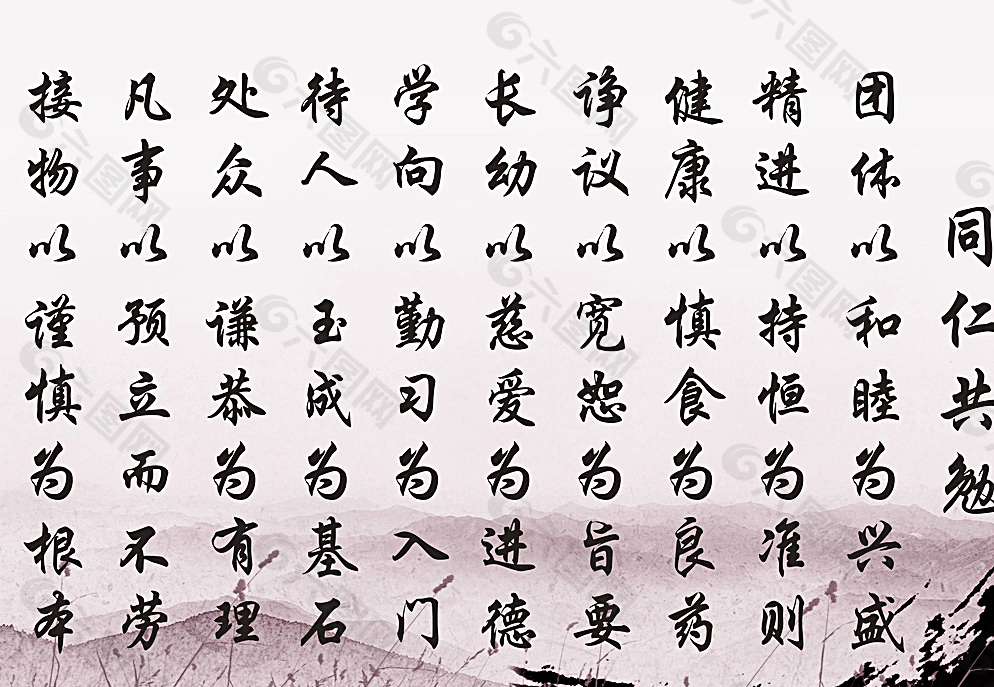 同仁共勉
团体以和睦为兴盛
精进以持恒为准则
健康以慎食为良药
诤议以宽恕为旨要
长幼以慈爱为进德
学向以勤习为入门
待人以玉成为基石
处众以谦恭为有理
凡事以预立而不劳
接物以谨慎为根本
六图网